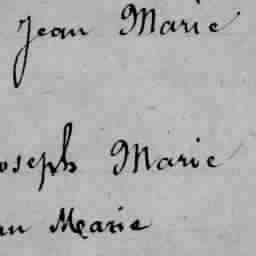 Jean Marie
oseph Marie
an Marie